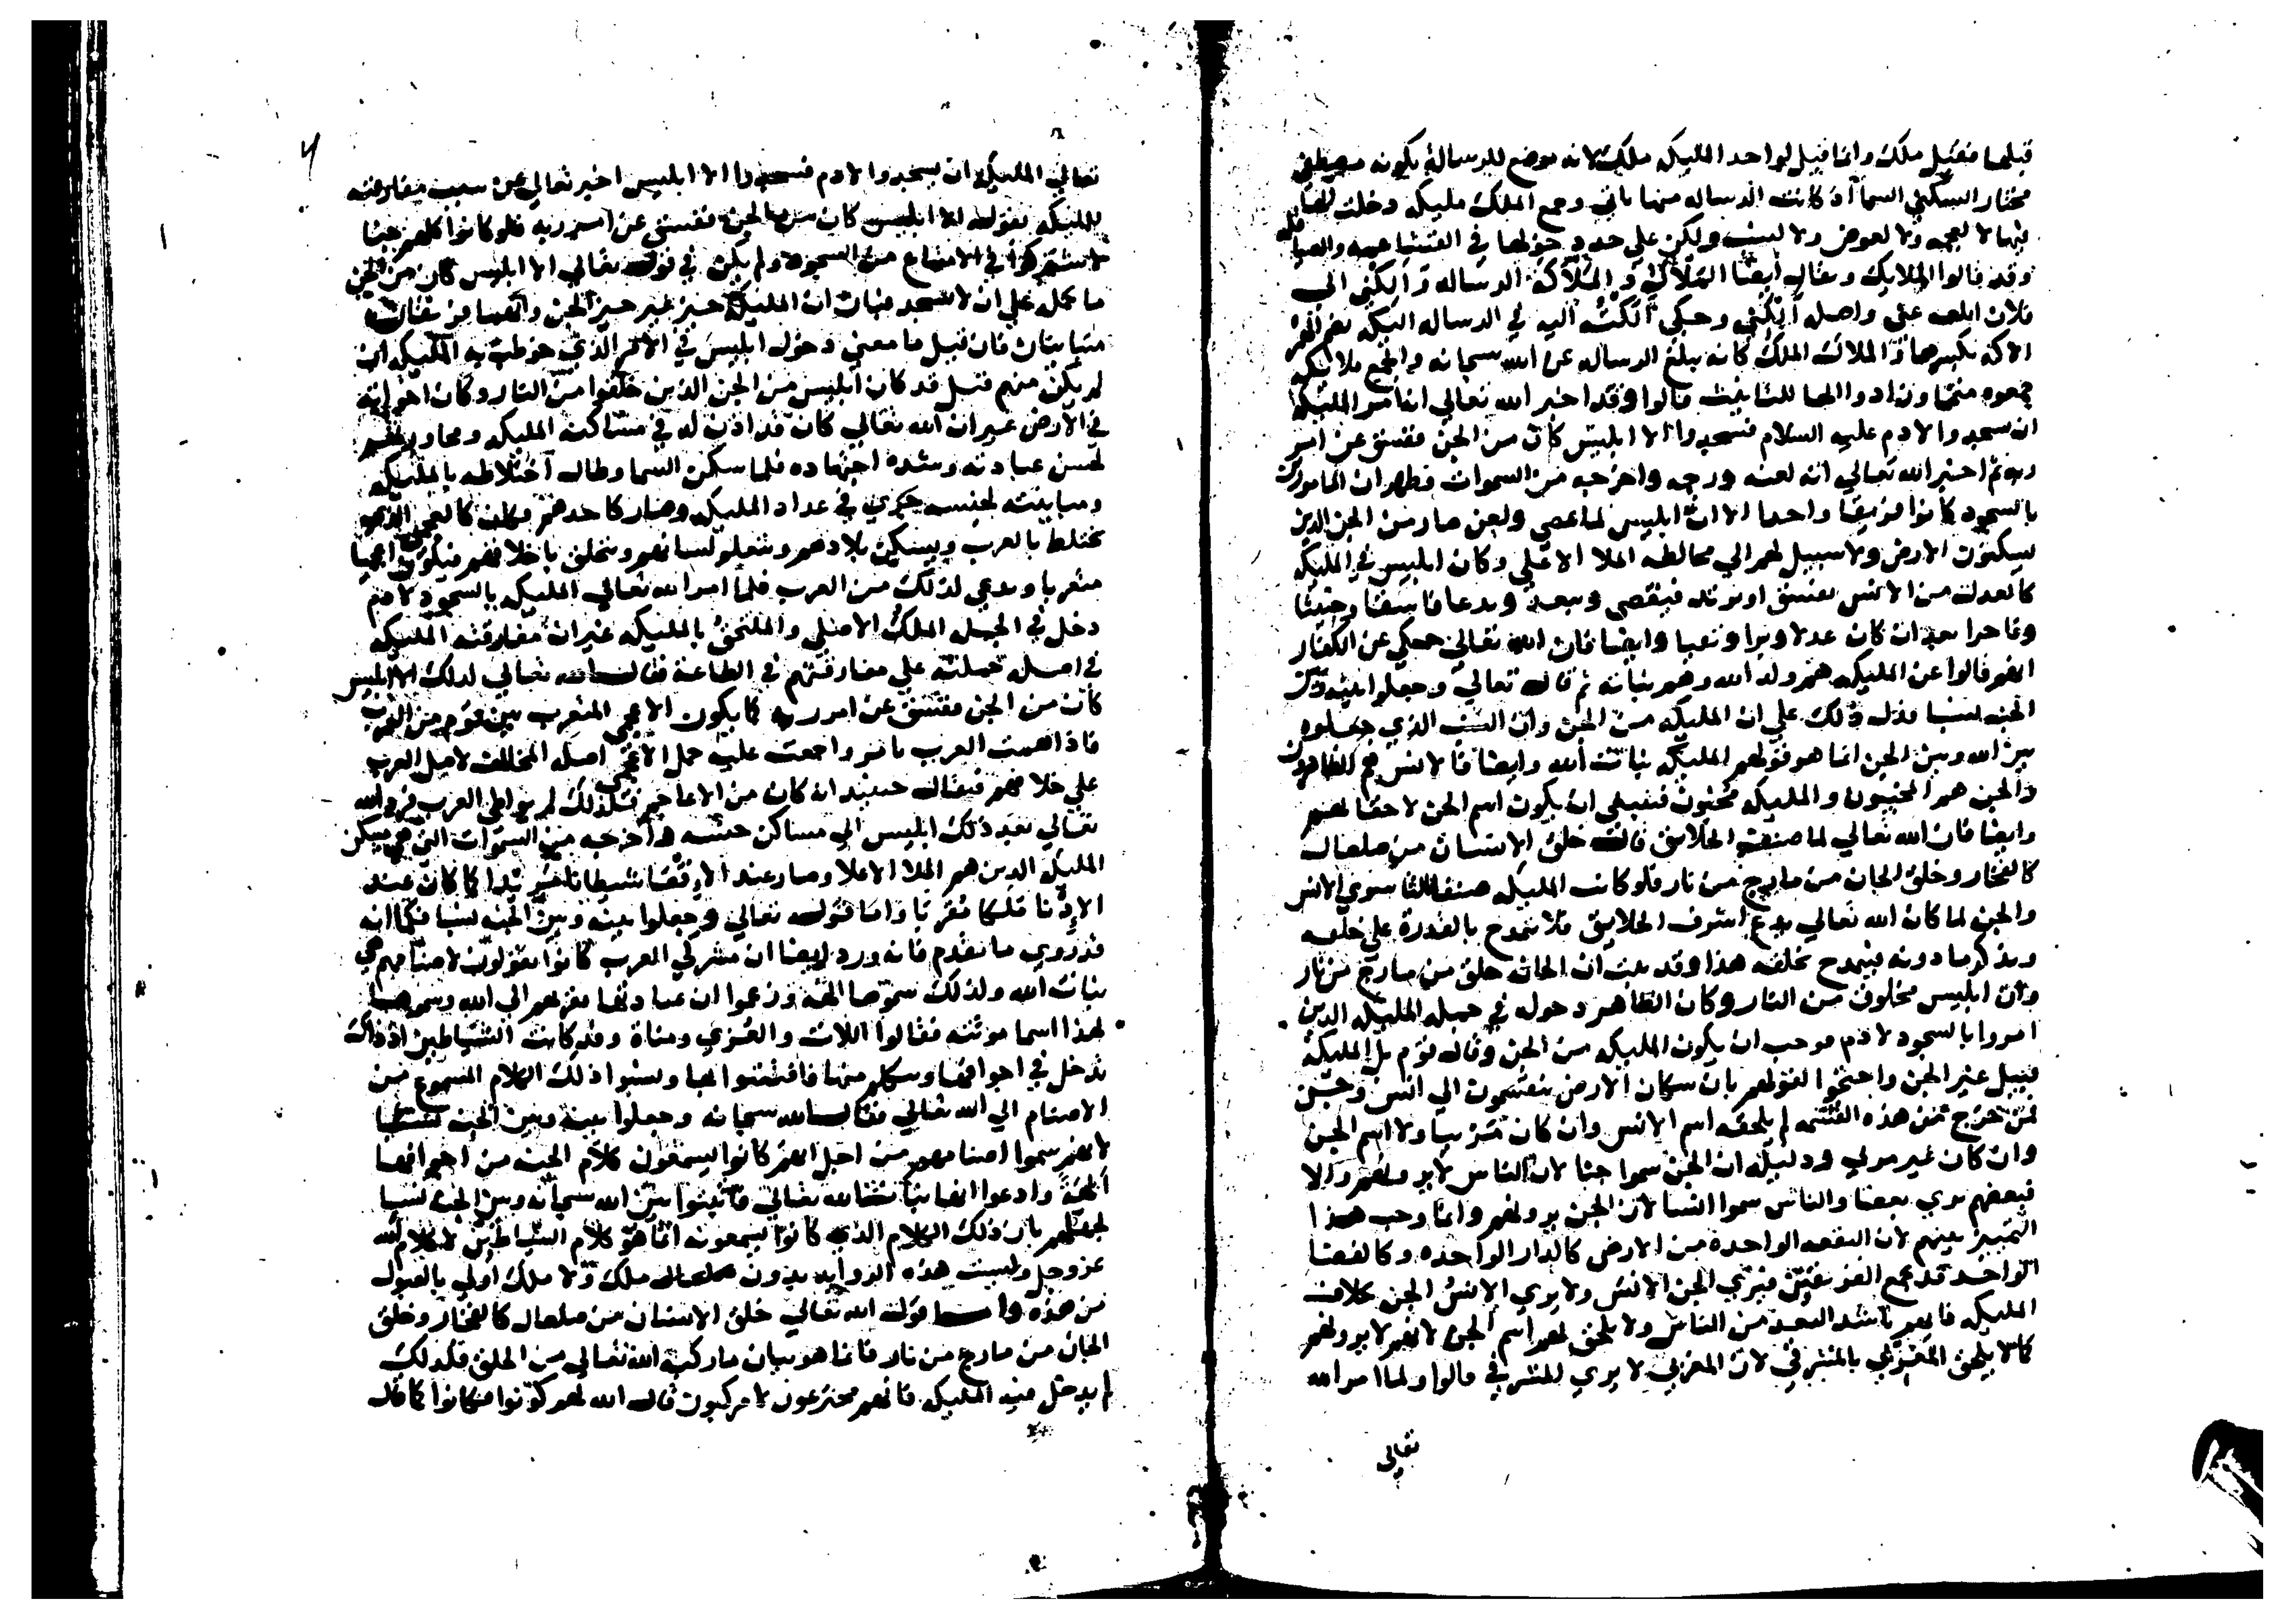 قبلها فقيل ملك وانما قيل لواحد المليكه ملك لانه موضع للرسالة بكونه مصطفي
مختار السكني السما اذ كانت الرساله منها تاتي وجمع الملك مليكه ودخلت الها
فيها لا لعجمه ولا لعوض ولا لنسب ولكن علي حد دخولها في القشاعمه والصياقله
وقد قالوا الملايك ويقال ايضا الملأك والملأكة الرساله والكني الي
فلان ابلغه عني واصله أألكني وحكي ألكته اليه في الرساله اليكه
الاكه فالملاك الملك كانه يبلغ الرساله عن الله سبحانه والجمع ملائكه
جمعوه متمما وزادوا الها للتانيث قالوا وقد اخبر الله تعالي انه امر المليكه
ان يسجدوا لادم عليه السلام فسجدوا الا ابليس كان من الجن ففسق عن امر
ربه ثم اخبر الله تعالي انه لعنه ورجمه واخرجه من السموات فظهر ان المامورين
بالسجود كانوا فريقا واحدا الا ان ابليس لما عصي ولعن صار من الجن الذين
يسكنون الارض ولا سبيل لهم الي مخالطه الملا الاعلي وكان ابليس في المليكه
كالعدل من الانس يفسق او يرتد فيقصي ويبعد ويدعا فاسقا وخبيثا
وفاجرا بعد ان كان عدلا وبرا وتقيا وايضا فان الله تعالي حكي عن الكفار
انهم قالوا عن المليكه هم ولد الله وهم بناته ثم قال تعالي وجعلوا بينه وبين
الجنه نسبا فدل ذلك علي ان المليكه من الجن وان النسب الذي جعلوه
بين الله وبين الجن انما هو قولهم المليكه بنات الله وايضا فالانس هم الظاهرون
والجن هم المختبيون والمليكه مختبون فينبغي ان يكون اسم الجن لاحقا لهم
وايضا فان الله تعالي لما صنف الخلايق قال خلق الانسان من صلصال
كالفخار وخلق الجان من مارج من نار فلو كانت المليكه صنفا ثالثا سوي الانس
والجن لما كان الله تعالي يدع اشرف الخلايق فلا يتمدح بالقدرة علي خلقه
ويذكر ما دونه فيتمدح بخلقه هذا وقد ثبت ان الجان خلق من مارج من نار
وان ابليس مخلوق من النار وكان الظاهر دخوله في جمله المليكه الذين
امروا بالسجود لادم موجب ان يكون المليكه من الجن وقال قوم بل المليكة
قبيل غير الجن واحتجوا لقولهم بان سكان الارض ينقسمون الي انس وجن
فمن خرج عن هذه القسمه لم يلحقه اسم الانس وان كان مرييا ولا اسم الجن
وان كان غير مرئي ودليله ان الجن سموا جنا لان الناس لا يرونهم والا
فبعضهم يري بعضا والناس سموا انسا لان الجن يرونهم وانما وجب هذا
التمييز بينهم لان البقعه الواحدة من الارض كالدار الواحده وكالفضا
الواحد قد تجمع الفريقين فيري الجن الانس ولا يري الانس الجن بخلاف
المليكه فانهم باشد البعد من الناس ولا يلحق لهم اسم الجن لانهم لا يرونهم
كما لا يلحق المغربي بالمشرقي لان المغربي لا يري المشرقي قالوا ولما امر الله
تعالى
تعالي المليكه ان يسجدوا لادم فسجدوا الا ابليس اخبر تعالي عن سبب مفارقته
للمليكه بقوله الا ابليس كان من الجن ففسق عن امر ربه فلو كانوا كلهم جنا
لاشتركوا في الامتناع من السجود ولم يكن في قوله تعالي الا ابليس كان من الجن
ما يحمله علي ان لا يسجد فبان ان المليكه حيز غير حيز الجن وانهما فريقان
متباينان فان قيل ما معني دخول ابليس في الامر الذي خوطب به المليكه ان
لم يكن منهم قيل قد كان ابليس من الجن الذين خلقوا من النار وكان اخوانه
في الارض غير ان الله تعالي كان قد اذن له في مساكنه المليكه ومجاورتهم
لحسن عبادته وشده اجتهاده فلما سكن السما وطال اختلاطه بالمليكه
ومباينته لجنسه جري في عداد المليكه وصار كاحدهم فكان كالعجمي الذي
يختلط بالعرب ويسكن بلادهم ويتعلم لسانهم ويتخلق باخلاقهم فيكون اعجميا
متعربا ويدعي لذلك من العرب فلما امر الله تعالي المليكه بالسجود لادم
دخل في الجمله الملك الاصلي والملتحق بالمليكه غير ان مفارقته المليكه
في اصله حملته علي مفارقتهم في الطاعة فقال الله تعالي لذلك الا ابليس
كان من الجن ففسق عن امر ربه كما يكون الاعجمي المتعرب بين قوم من العرب
فاذا همت العرب بامر واجمعت عليه حمل الاعجمي اصله المخالف لاصل العرب
علي خلافهم فيقال حينئذ انه كان من الاعاجم فلذلك لم يواطي العرب فرده الله
تعالي بعد ذلك ابليس الي مساكن جنسه واخرجه من السموات التي هي مسكن
المليكه الذين هم الملا الاعلا وصار عند الارفعنا شيطانا مريدا كما كان عند
الادنا ملكا مقربا واما قوله تعالي وجعلوا بينه وبين الجنه نسبا فكما انه
قد روي ما تقدم فانه ورد ايضا ان مشركي العرب كانوا يقولون لاصنامهم هي
بنات الله ولذلك سموها الهة وزعموا ان عبادتها تقربهم الي الله وسموها
لهذا اسما مونثه فقالوا اللات والعزي ومناة وقد كانت الشياطين اذ ذاك
تدخل في اجوافها وتكلم منها فافتتنوا بها ونسبوا ذلك الكلام المسموع من
الاصنام الي الله تعالي فقال الله سبحانه وجعلوا بينه وبين الجنه نسبا
لانهم سموا اصنامهم من اجل انهم كانوا يسمعون كلام الجن من اجوافها
الهة وادعوا انها بنات الله تعالي فاثبتوا بين الله سبحانه وبين الجن نسبا
لجهلهم بان ذلك الكلام الذي كانوا يسمعونه انما هو كلام الشياطين لا كلام الله
عز وجل وليست هذه الرواية بدون ملك ولا ملك اولي بالقبول
من هذه واما قوله الله تعالي خلق الانسان من صلصال كالفخار وخلق
الجان من مارج من نار فانما هو بيان ما ركبه الله تعالي من الخلق فلذلك
لم يدخل فيه المليكه فانهم مخترعون لا مركبون قال الله لهم كونوا فكانوا كما قال